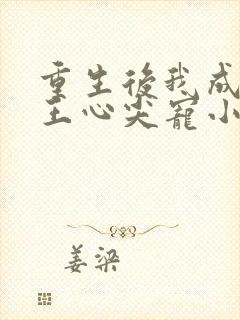 重生後我成
王心尖寵小
姜梁